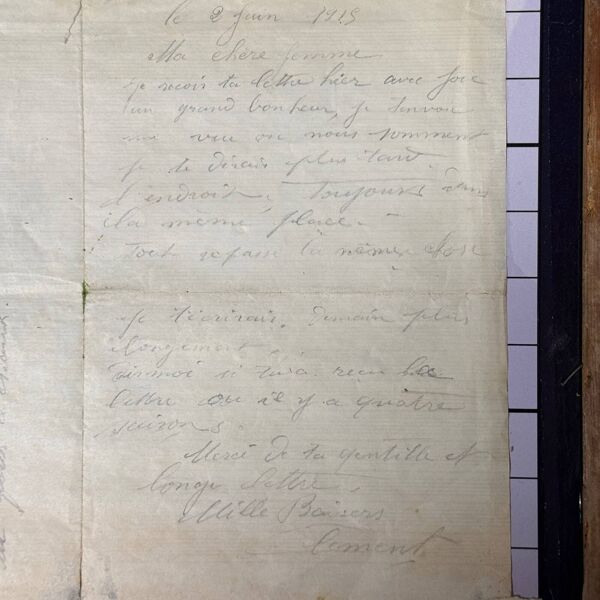 le 2 juin 1915
Ma chère femme
je recois ta lettre hier avec joie
un grand bonheur, je t'envoi
une vue ou nous somment
je te dirais plus tard
l'endroit, Toujours dans
la même place.
Tout se passe la même chose
je t'écrirais. Demain plus
longement
Dis moi si tu a recu la
lettre ou il y a quatre
saisons.
Merci de ta gentille et
longe lettre.
Mille Baisers
Clement